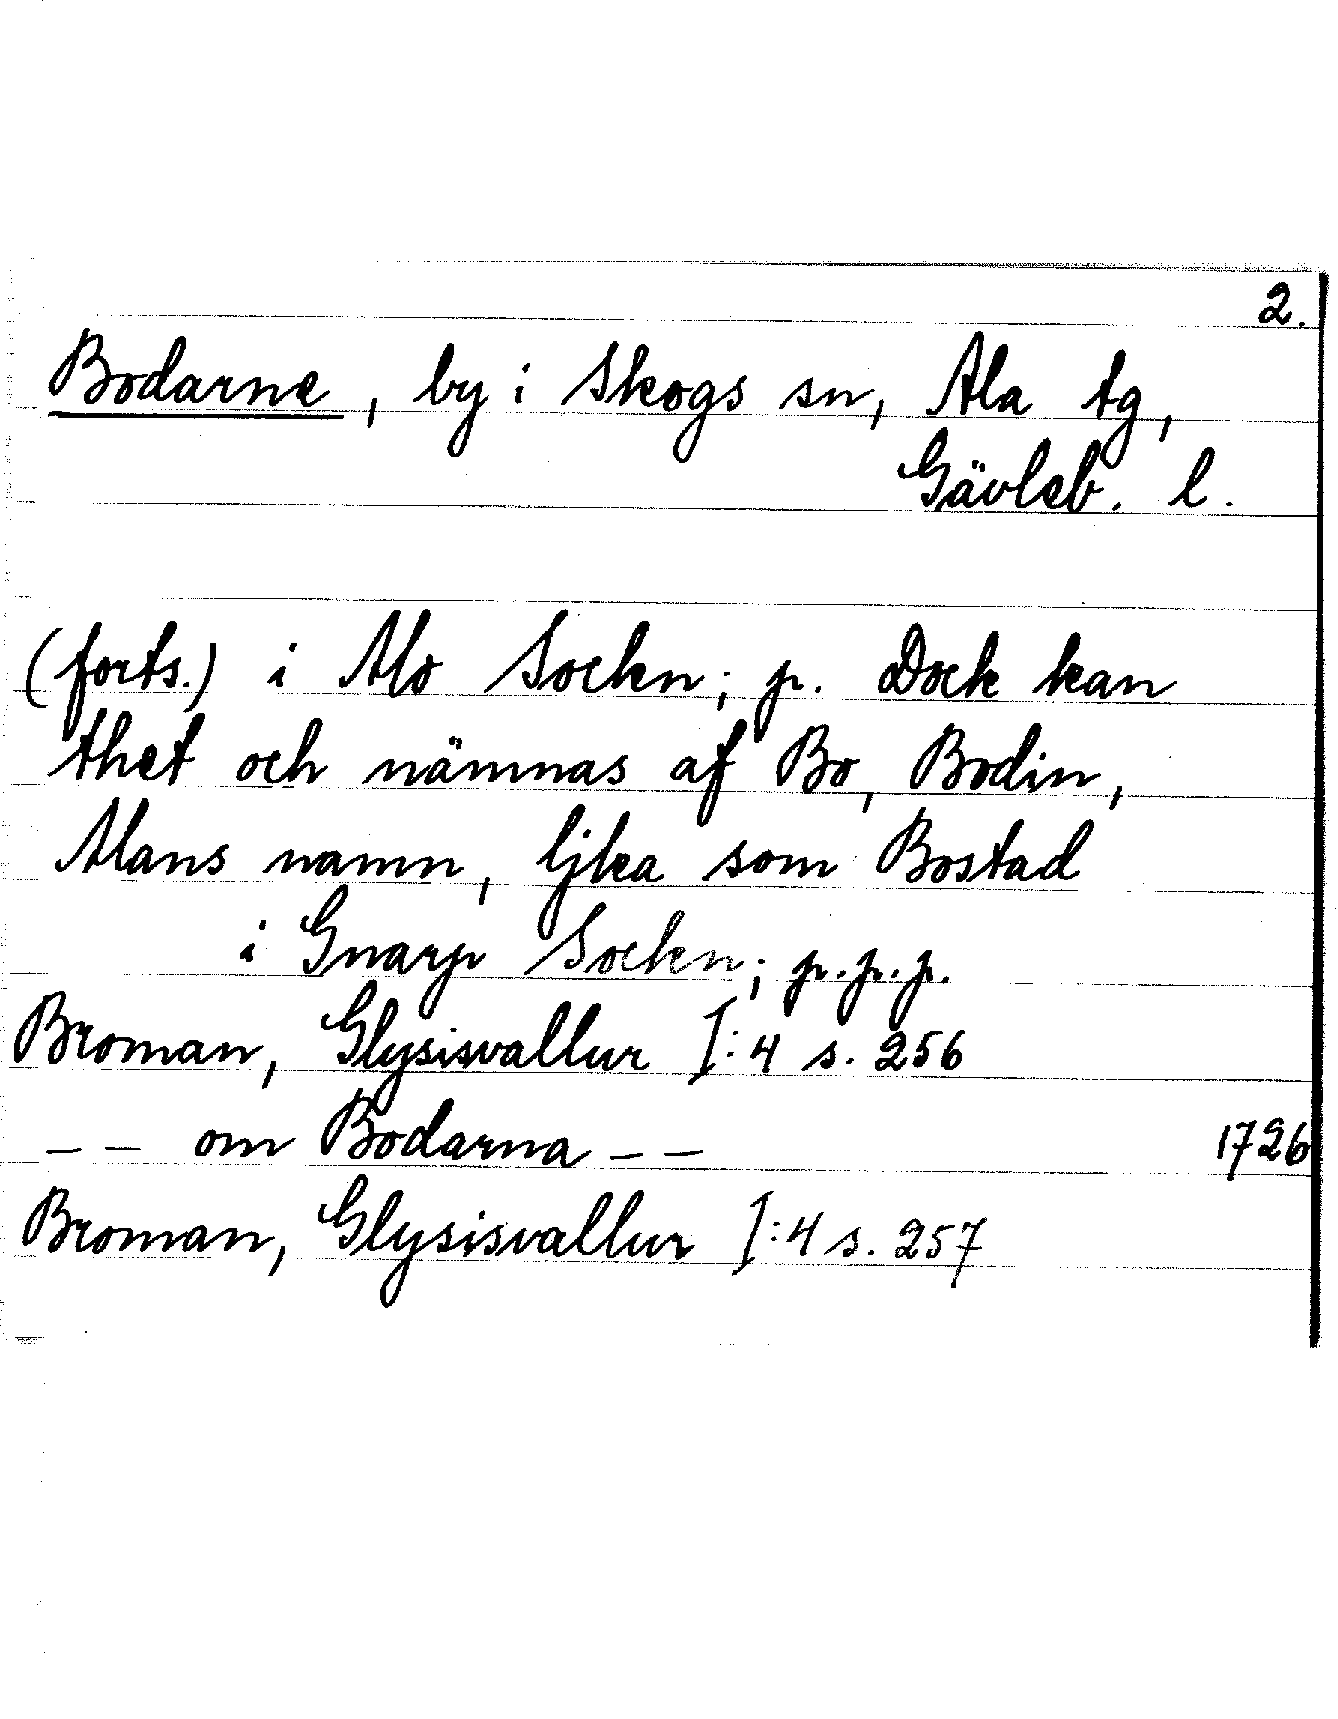 2.
Bodarne, by i Skogs sn, Ala tg,
Gävleb. l.
(forts.) i Alo Sockn; p. Dock kan
thet och nämnas af Bo, Bodin,
Mans namn, ljka som Bostad
i Gnarp Sockn; p.p.p.
Broman, Glysisvallur I:4 s. 256
-- om Bodarna -- 1726
Broman, Glysisvallur I:4 s. 257